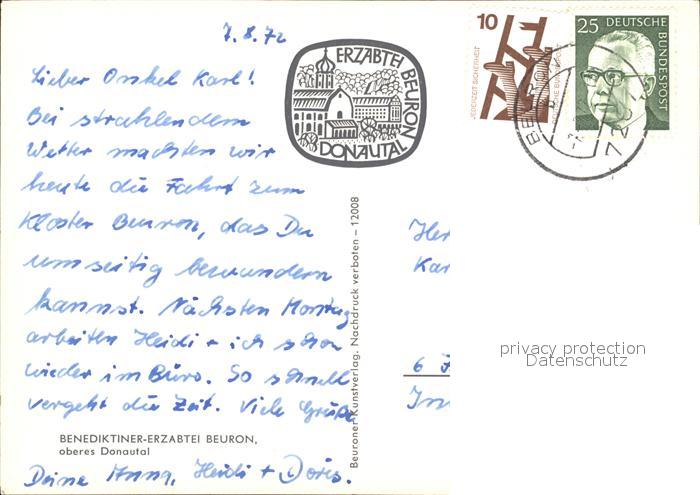 7.8.72
Lieber Onkel Karl!
Bei strahlendem
Wetter machten wir
heute die Fahrt zum
Kloster Beuron, das Du
umseitig bewundern
kannst. Nächsten Montag
arbeiten Heidi + ich schon
wieder im Büro. So schnell
vergeht die Zeit. Viele Grüße
BENEDIKTINER-ERZABTEI BEURON,
oberes Donautal
Deine Anna, Heidi + Doris.
Beuroner Kunstverlag. Nachdruck verboten – 12008
ERZABTEI BEURON
DONAUTAL
10
JEDERZEIT SICHERHEIT
25 DEUTSCHE
BUNDESPOST
Her
Kar
6
privacy protection
Datenschutz